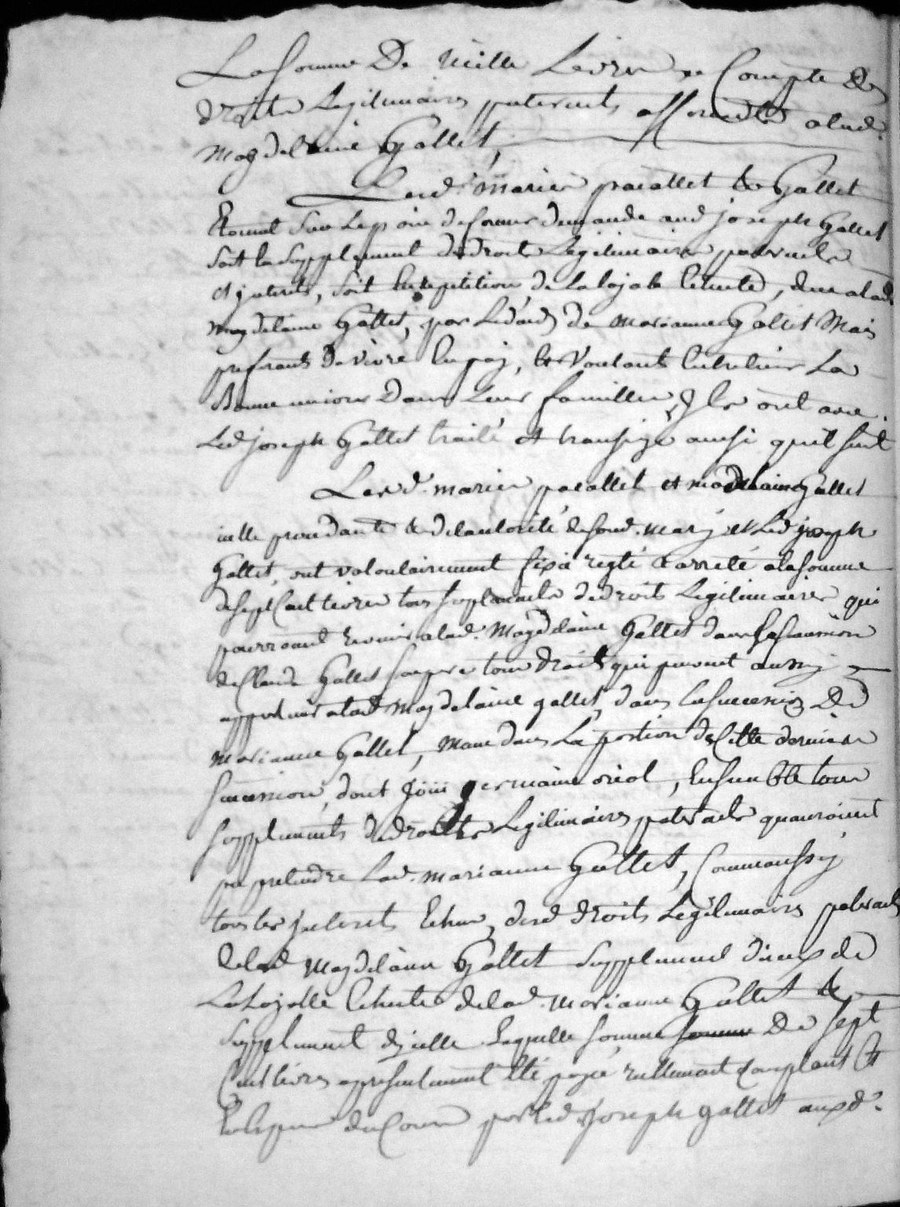 La somme De mille Livres Compte des
droits Legitimaires paternels alad.
Magdelaine Gallet,
Lesd. mariés pacallet & Gallet
sur le point de former demande aud joseph Gallet
soit la supplement de droits Legitimaire paternels
et jnterets, soit de La échute, alad
magdelaine Gallet, par Led de marianne Gallet Mais
preferants De vivre En paix, & voulants Entretenir La
Bonne union Dans Leur famille, Jls ont avec
Led joseph Gallet traité et transigé ainsi quil suit
Lesd. mariés pacallet et magdelaine Gallet
icelle procedante de lautorité de sond. mary et Led joseph
Gallet, ont volontairement fixé reglé & arreté ala somme
de sept Cent livres tous supplements de droits Legitimaires qui
pourroient alad. Magdelaine Gallet dans la sucession
de Claude Gallet son pere tous droits qui peuvent aussy
appartenir alad Magdelaine gallet, dans La sucession De
marianne Gallet, meme dans La portion de Cette derniere
sucession, dont joui germaine oriol, Ensemble tous
supplements de droits Legitimaires paternels quauroient
pu pretendre Lad. marianne Gallet, Comme aussy
tous les jnterets Echus, desd droits Legitimaires paternels
de lad Magdelaine Gallet supplement diceux de
échute de lad. marianne Gallet &
supplement dicelle Laquelle somme somme De sept
Cent livres a presentement été payé réellement comptant Et
En Especes du Cours par led joseph gallet auxd.